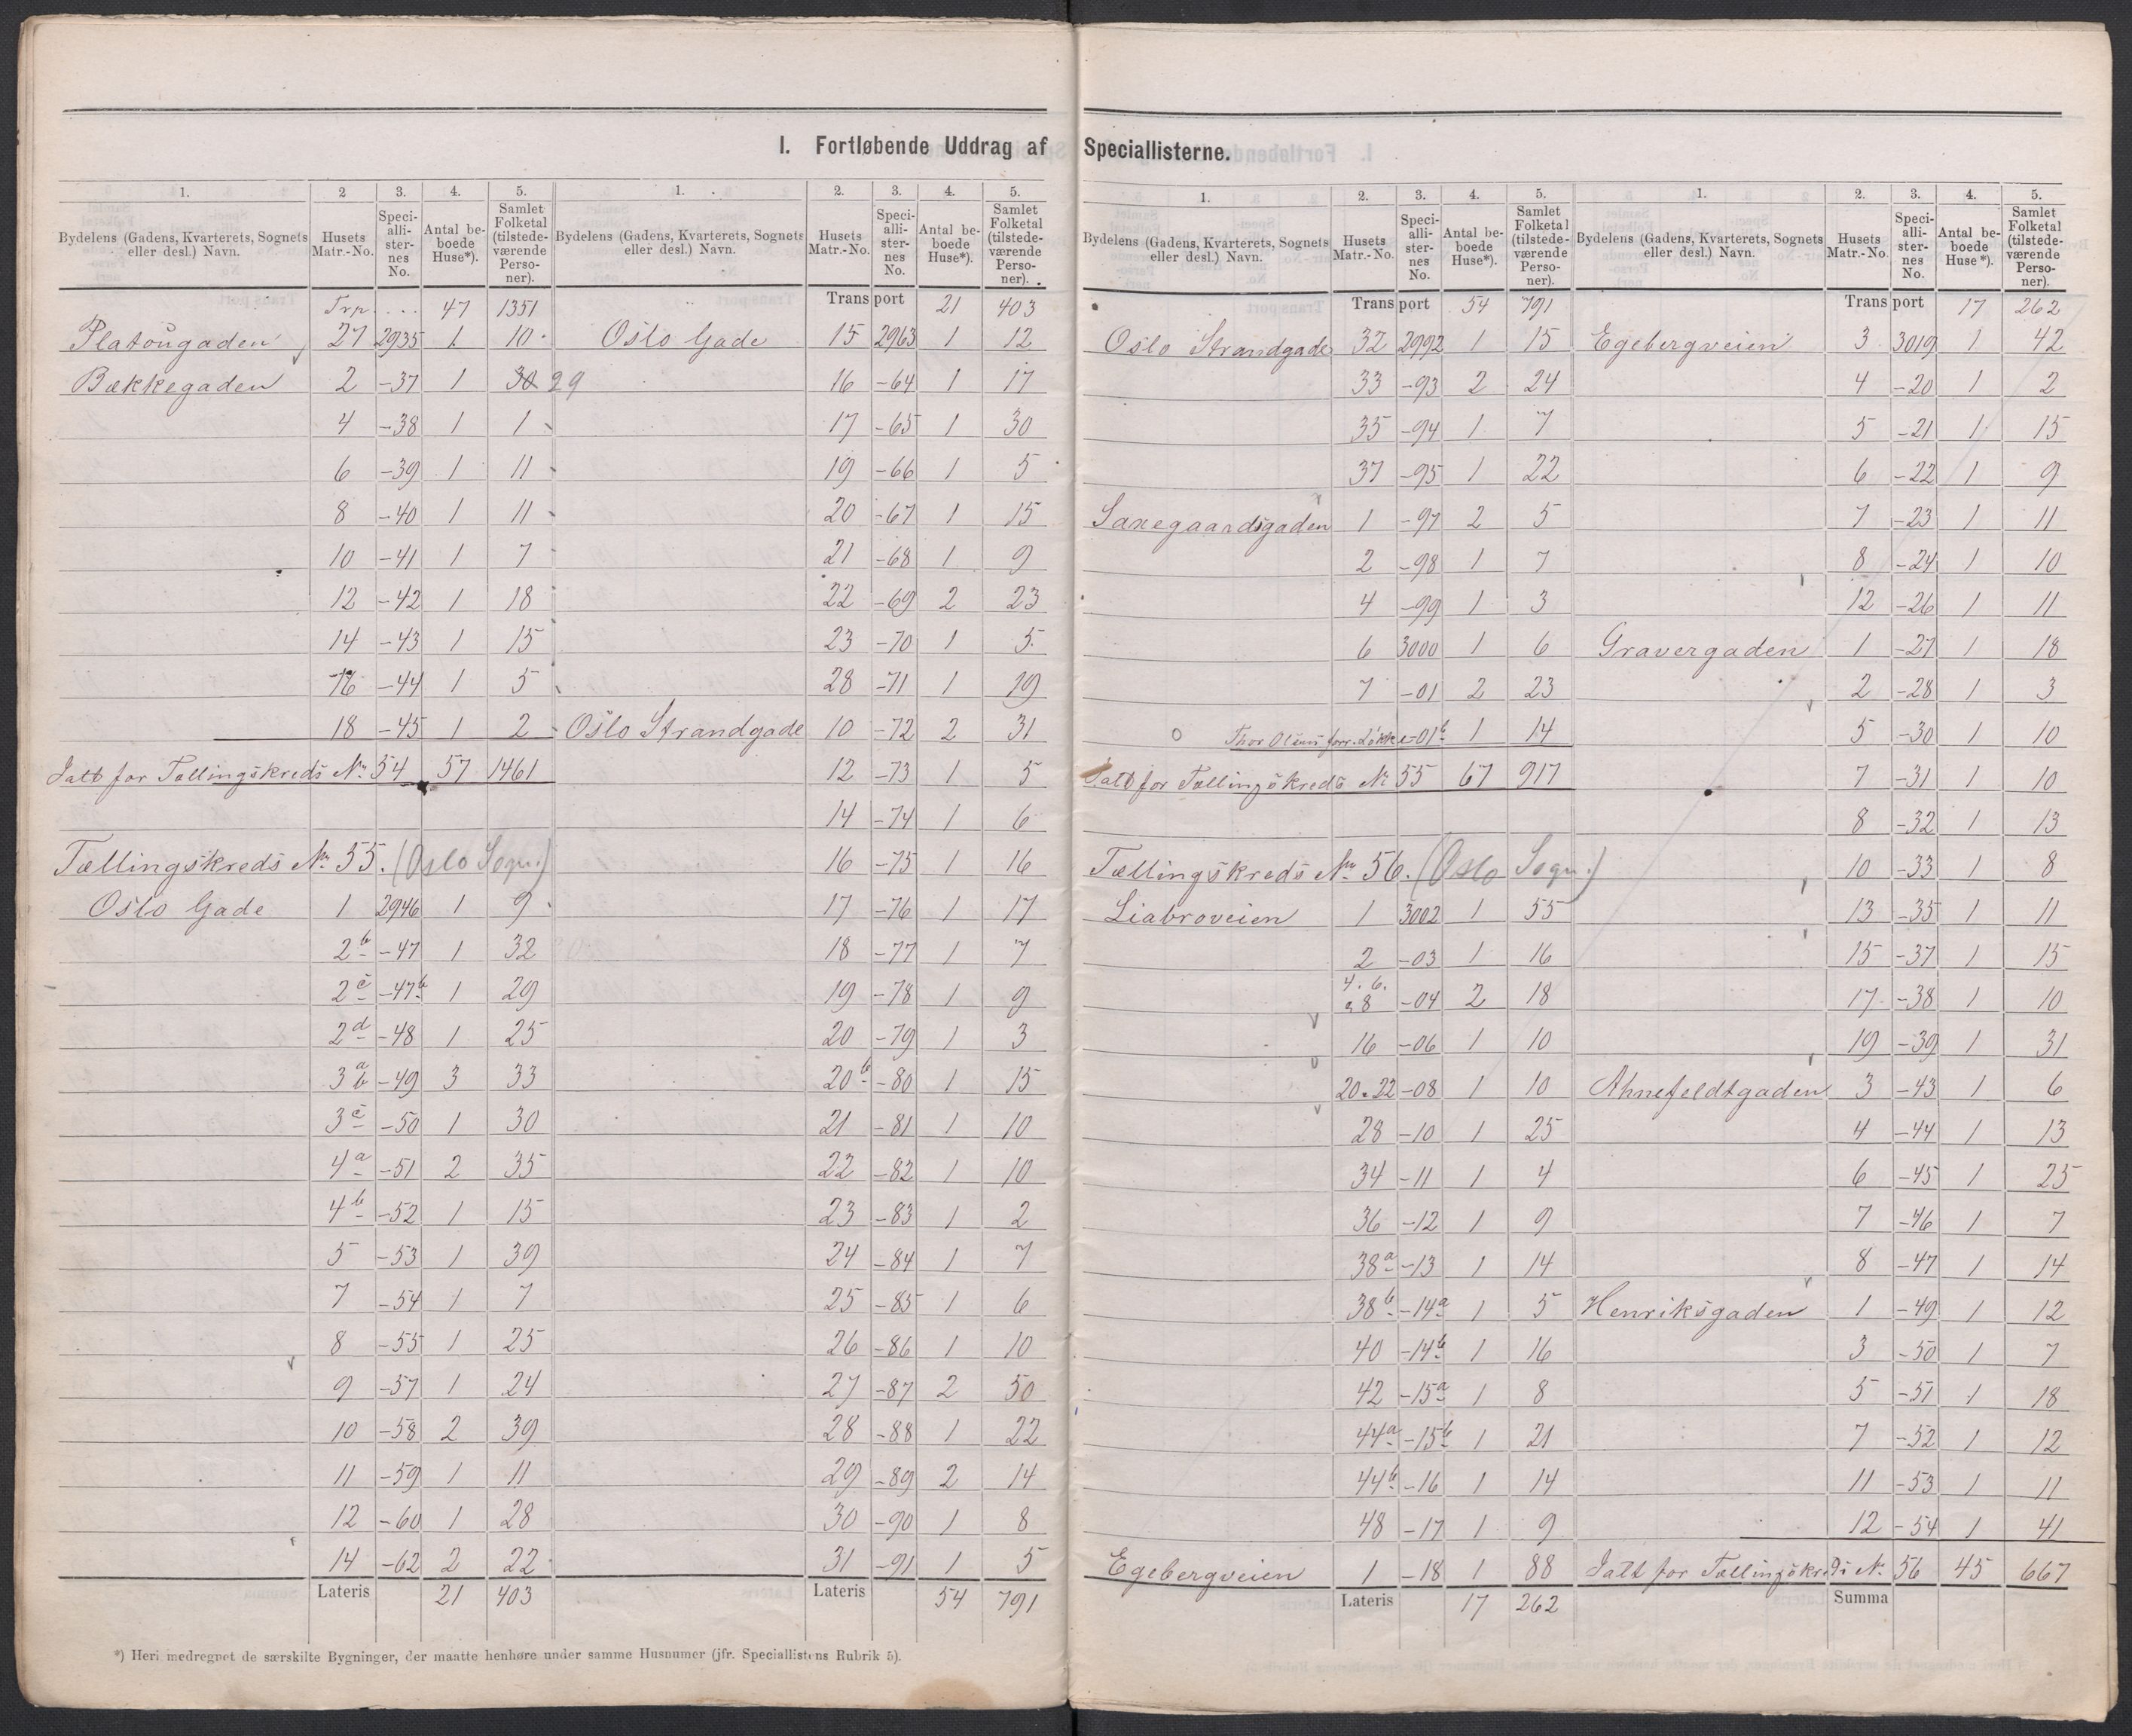 I. Fortløbende Uddrag af Speciallisterne.
1. 2 3. 4. 5.
Bydelens (Gadens, Kvarterets, Sognets eller desl.) Navn. Husets Matr.-No. Speci-alli-ster-nes No. Antal be-boede Huse*). Samlet Folketal (tilstede-værende Perso-ner).
Trp. . . . 47 1351
Platöugaden 27 2935 1 10
Bækkegaden 2 -37 1 30 29
4 -38 1 1
6 -39 1 11
8 -40 1 11
10 -41 1 7
12 -42 1 18
14 -43 1 15
16 -44 1 5
18 -45 1 2
Ialt for Tællingskreds No. 54 57 1461
Tællingskreds No. 55. (Oslo Sogn.)
Oslo Gade 1 2946 1 9
2b -47 1 32
2c -47b 1 29
2d -48 1 25
3a b -49 3 33
3c -50 1 30
4a -51 2 35
4b -52 1 15
5 -53 1 39
7 -54 1 7
8 -55 1 25
9 -57 1 24
10 -58 2 39
11 -59 1 11
12 -60 1 28
14 -62 2 22
Lateris 21 403
1. 2. 3. 4. 5.
Bydelens (Gadens, Kvarterets, Sognets eller desl.) Navn. Husets Matr.-No. Speci-alli-ster-nes No. Antal be-boede Huse*). Samlet Folketal (tilstede-værende Perso-ner).
Transport 21 403
Oslo Gade 15 2963 1 12
16 -64 1 17
17 -65 1 30
19 -66 1 5
20 -67 1 15
21 -68 1 9
22 -69 2 23
23 -70 1 5
28 -71 1 19
Oslo Strandgade 10 -72 2 31
12 -73 1 5
14 -74 1 6
16 -75 1 16
17 -76 1 17
18 -77 1 7
19 -78 1 9
20 -79 1 3
20b -80 1 15
21 -81 1 10
22 -82 1 10
23 -83 1 2
24 -84 1 7
25 -85 1 6
26 -86 1 10
27 -87 2 50
28 -88 1 22
29 -89 2 14
30 -90 1 8
31 -91 1 5
Lateris 54 791
*) Heri medregnet de særskilte Bygninger, der maatte henhøre under samme Husnumer (jfr. Speciallistens Rubrik 5).
1. 2. 3. 4. 5.
Bydelens (Gadens, Kvarterets, Sognets eller desl.) Navn. Husets Matr.-No. Speci-alli-ster-nes No. Antal be-boede Huse*). Samlet Folketal (tilstede-værende Perso-ner).
Transport 54 791
Oslo Strandgade 32 2992 1 15
33 -93 2 24
35 -94 1 7
37 -95 1 22
Saxegaardsgaden 1 -97 2 5
2 -98 1 7
4 -99 1 3
6 3000 1 6
7 -01 2 23
Thor Olsens forr. Løkke -01b 1 14
Ialt for Tællingskreds No 55 67 917
Tællingskreds No. 56. (Oslo Sogn.)
Liabroveien 1 3002 1 55
2 -03 1 16
4. 6. a 8 -04 2 18
16 -06 1 10
20.22 -08 1 10
28 -10 1 25
34 -11 1 4
36 -12 1 9
38a -13 1 14
38b -14a 1 5
40 -14b 1 16
42 -15a 1 8
44a -15b 1 21
44b -16 1 14
48 -17 1 9
Egebergveien 1 -18 1 88
Lateris 17 262
1. 2. 3. 4. 5.
Bydelens (Gadens, Kvarterets, Sognets eller desl.) Navn. Husets Matr.-No. Speci-alli-ster-nes No. Antal be-boede Huse*). Samlet Folketal (tilstede-værende Perso-ner).
Transport 17 262
Egebergveien 3 3019 1 42
4 -20 1 2
5 -21 1 15
6 -22 1 9
7 -23 1 11
8 -24 1 10
12 -26 1 11
Gravergaden 1 -27 1 18
2 -28 1 3
5 -30 1 10
7 -31 1 10
8 -32 1 13
10 -33 1 8
13 -35 1 11
15 -37 1 15
17 -38 1 10
19 -39 1 31
Ahnefeldtgaden 3 -43 1 6
4 -44 1 13
6 -45 1 25
7 -46 1 7
8 -47 1 14
Henriksgaden 1 -49 1 12
3 -50 1 7
5 -51 1 18
7 -52 1 12
11 -53 1 11
12 -54 1 41
Ialt for Tællingskreds No. 56 45 667
Summa